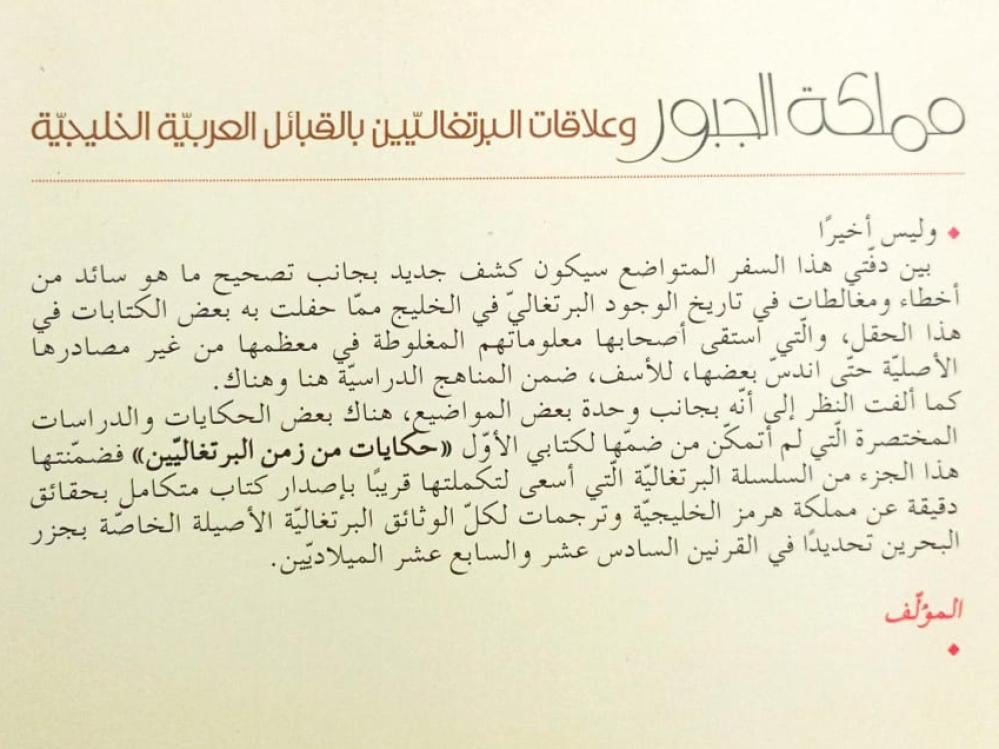 مملكة الجبور وعلاقات البرتغاليّين بالقبائل العربيّة الخليجيّة
وليس أخيرًا
بين دفّتي هذا السفر المتواضع سيكون كشف جديد بجانب تصحيح ما هو سائد من
أخطاء ومغالطات في تاريخ الوجود البرتغاليّ في الخليج ممّا حفلت به بعض الكتابات في
هذا الحقل، والّتي استقى أصحابها معلوماتهم المغلوطة في معظمها من غير مصادرها
الأصليّة حتّى اندسّ بعضها، للأسف، ضمن المناهج الدراسيّة هنا وهناك.
كما ألفت النظر إلى أنّه بجانب وحدة بعض المواضيع، هناك بعض الحكايات والدراسات
المختصرة الّتي لم أتمكّن من ضمّها لكتابي الأوّل «حكايات من زمن البرتغاليّين» فضمّنتها
هذا الجزء من السلسلة البرتغاليّة الّتي أسعى لتكملتها قريبًا بإصدار كتاب متكامل بحقائق
دقيقة عن مملكة هرمز الخليجيّة وترجمات لكلّ الوثائق البرتغاليّة الأصيلة الخاصّة بجزر
البحرين تحديدًا في القرنين السادس عشر والسابع عشر الميلاديّين.
المؤلّف